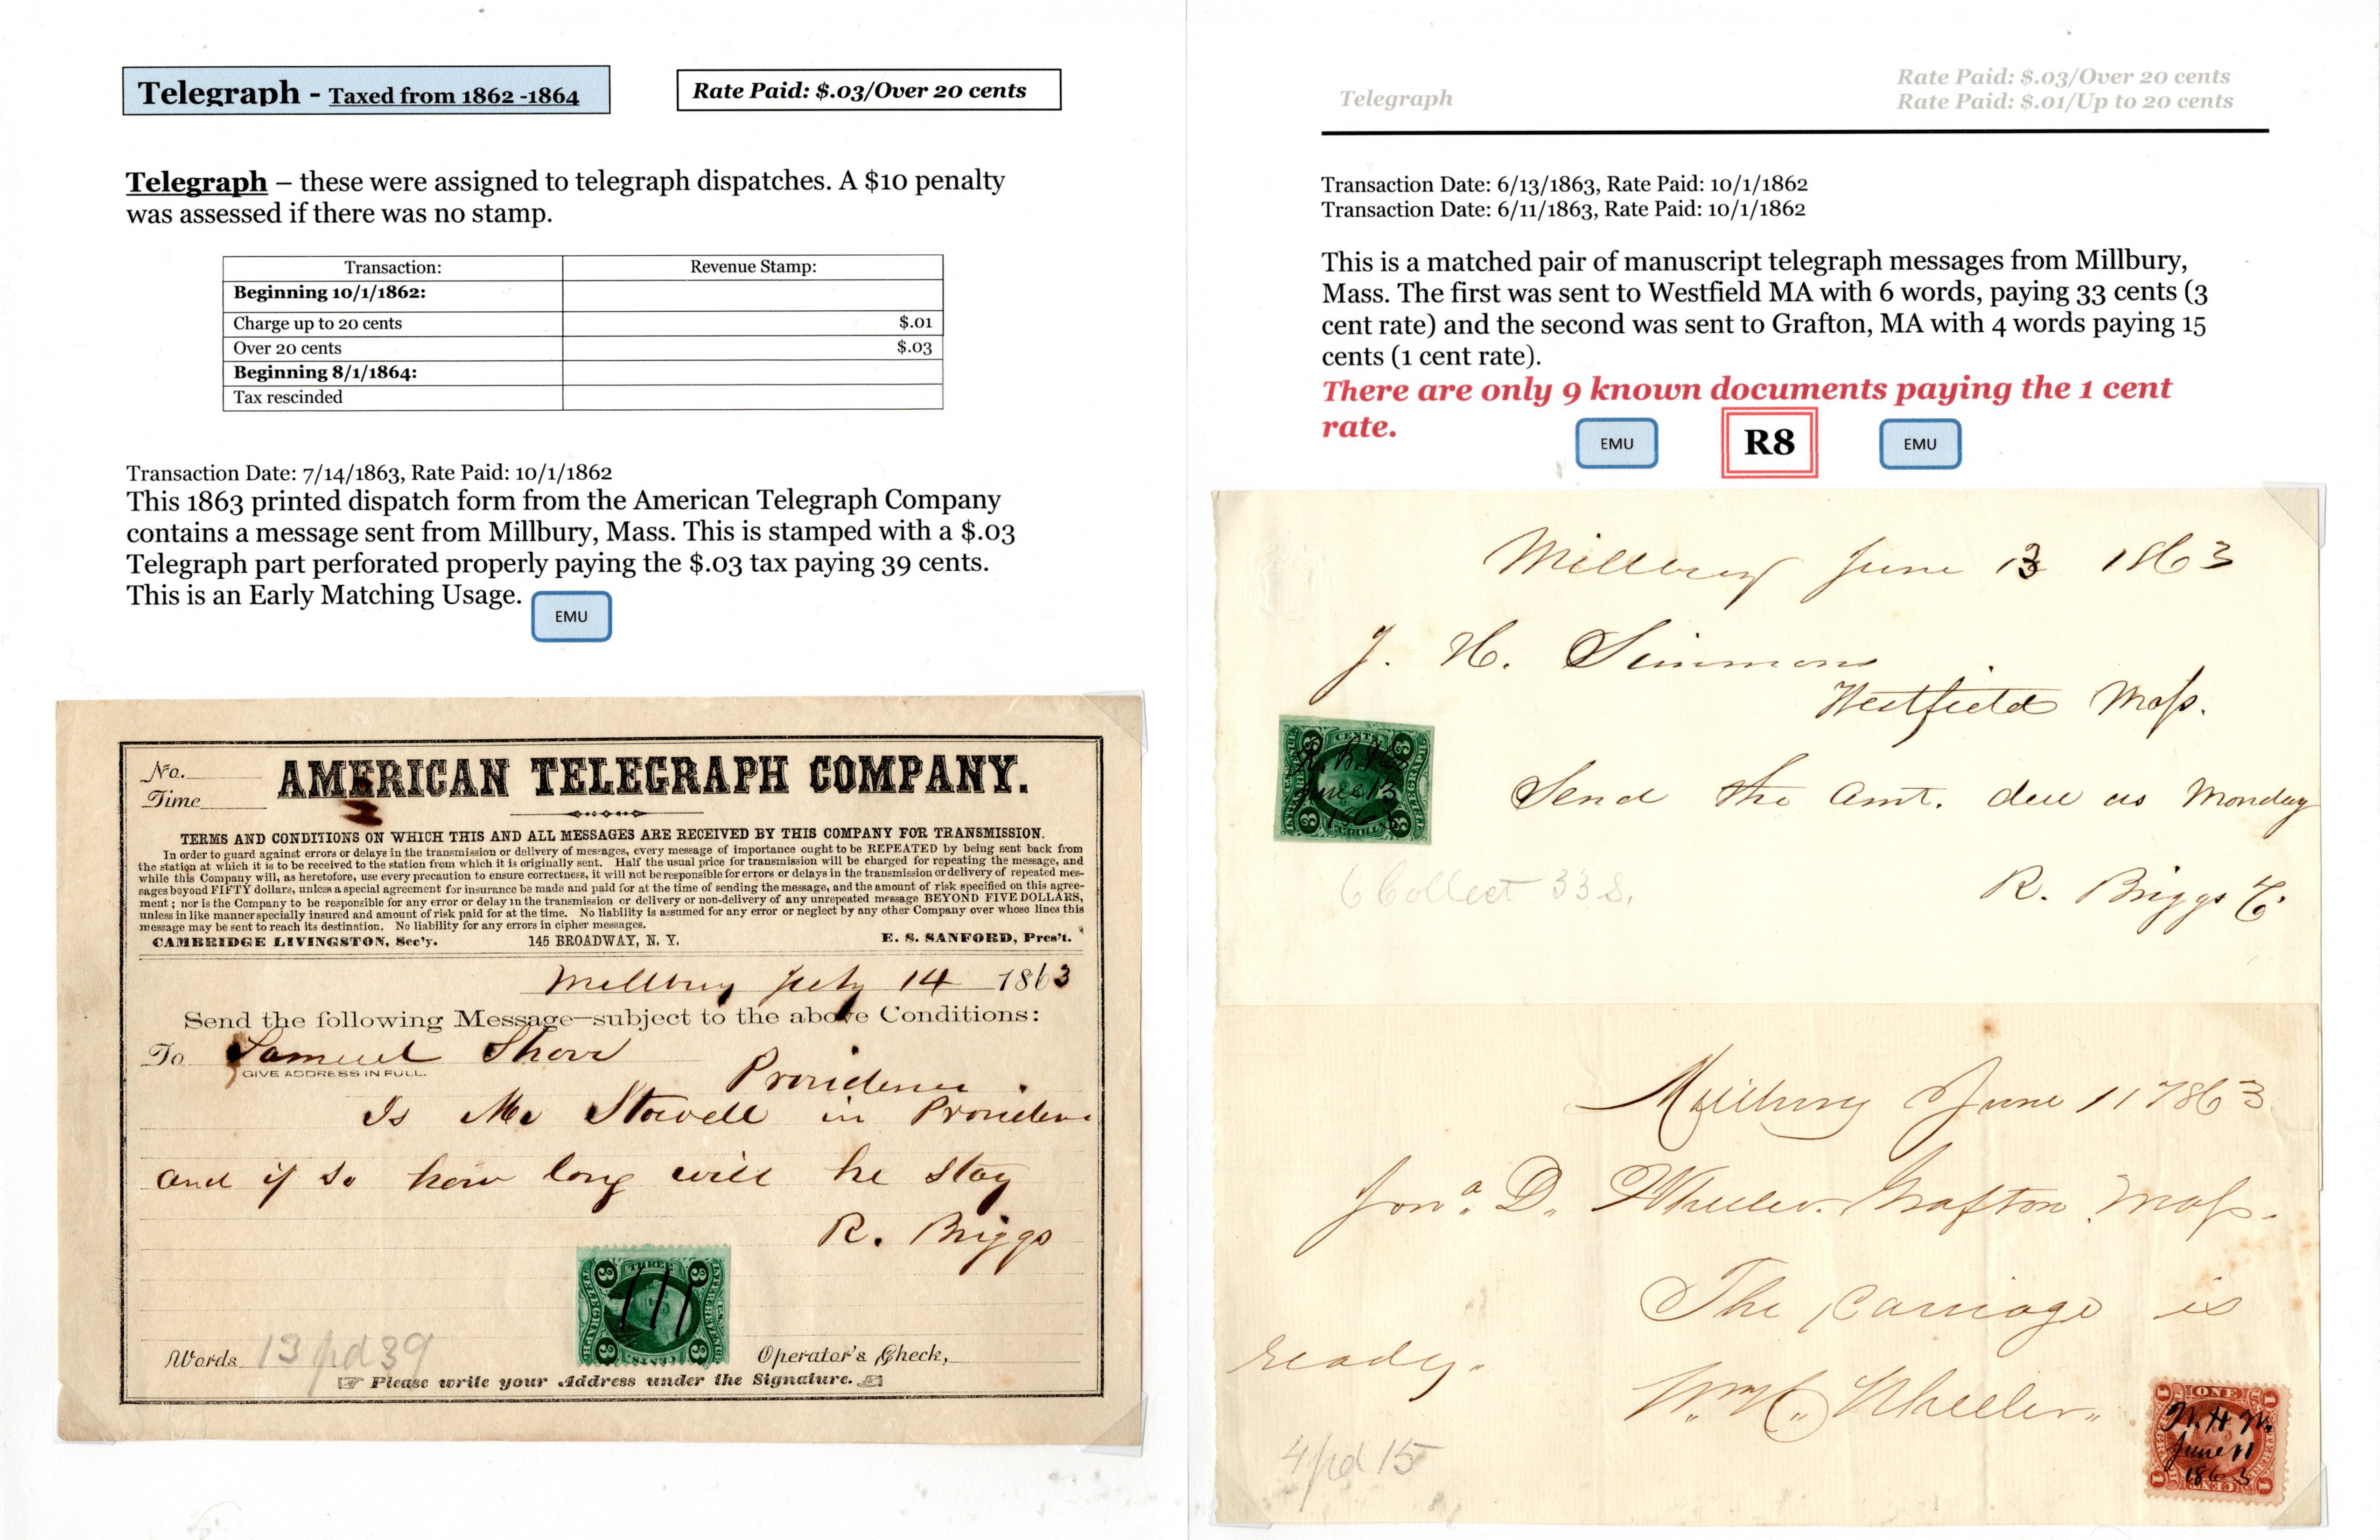 Telegraph - Taxed from 1862 -1864
Rate Paid: $.03/Over 20 cents
Telegraph – these were assigned to telegraph dispatches. A $10 penalty
was assessed if there was no stamp.
Transaction: Revenue Stamp:
Beginning 10/1/1862:
Charge up to 20 cents $.01
Over 20 cents $.03
Beginning 8/1/1864:
Tax rescinded
Transaction Date: 7/14/1863, Rate Paid: 10/1/1862
This 1863 printed dispatch form from the American Telegraph Company
contains a message sent from Millbury, Mass. This is stamped with a $.03
Telegraph part perforated properly paying the $.03 tax paying 39 cents.
This is an Early Matching Usage.
EMU
No.
Time
AMERICAN TELEGRAPH COMPANY.
TERMS AND CONDITIONS ON WHICH THIS AND ALL MESSAGES ARE RECEIVED BY THIS COMPANY FOR TRANSMISSION.
In order to guard against errors or delays in the transmission or delivery of messages, every message of importance ought to be REPEATED by being sent back from
the station at which it is to be received to the station from which it is originally sent. Half the usual price for transmission will be charged for repeating the message, and
while this Company will, as heretofore, use every precaution to ensure correctness, it will not be responsible for errors or delays in the transmission or delivery of repeated mes-
sages beyond FIFTY dollars, unless a special agreement for insurance be made and paid for at the time of sending the message, and the amount of risk specified on this agree-
ment; nor is the Company to be responsible for any error or delay in the transmission or delivery or non-delivery of any unrepeated message BEYOND FIVE DOLLARS,
unless in like manner specially insured and amount of risk paid for at the time. No liability is assumed for any error or neglect by any other Company over whose lines this
message may be sent to reach its destination. No liability for any errors in cipher messages.
CAMBRIDGE LIVINGSTON, Sec'y. 145 BROADWAY, N. Y. E. S. SANFORD, Pres't.
Millbury July 14 1863
Send the following Message—subject to the above Conditions:
To Samuel Shove
GIVE ADDRESS IN FULL.
Providence
Is Mr Stowell in Providence
and if so how long will he stay
R. Briggs
THREE
3 3
TELEGRAPH
INTER. REVENUE
3 3
CENTS
Words 13 pd 39
Operator's Check,
Please write your Address under the Signature.
Telegraph
Rate Paid: $.03/Over 20 cents
Rate Paid: $.01/Up to 20 cents
Transaction Date: 6/13/1863, Rate Paid: 10/1/1862
Transaction Date: 6/11/1863, Rate Paid: 10/1/1862
This is a matched pair of manuscript telegraph messages from Millbury,
Mass. The first was sent to Westfield MA with 6 words, paying 33 cents (3
cent rate) and the second was sent to Grafton, MA with 4 words paying 15
cents (1 cent rate).
There are only 9 known documents paying the 1 cent
rate.
EMU
R8
EMU
Millbury June 13 1863
J. H. Simmons
Westfield Mass.
Send the Amt. due us Monday
R. Briggs
CENTS
June 13
6 Collect 33
Millbury June 11 1863
Jona. D. Wheeler. Grafton Mass.
The Carriage is
ready.
Wm. H. Wheeler.
4 pd 15
ONE
W. H. W.
June 11
1863